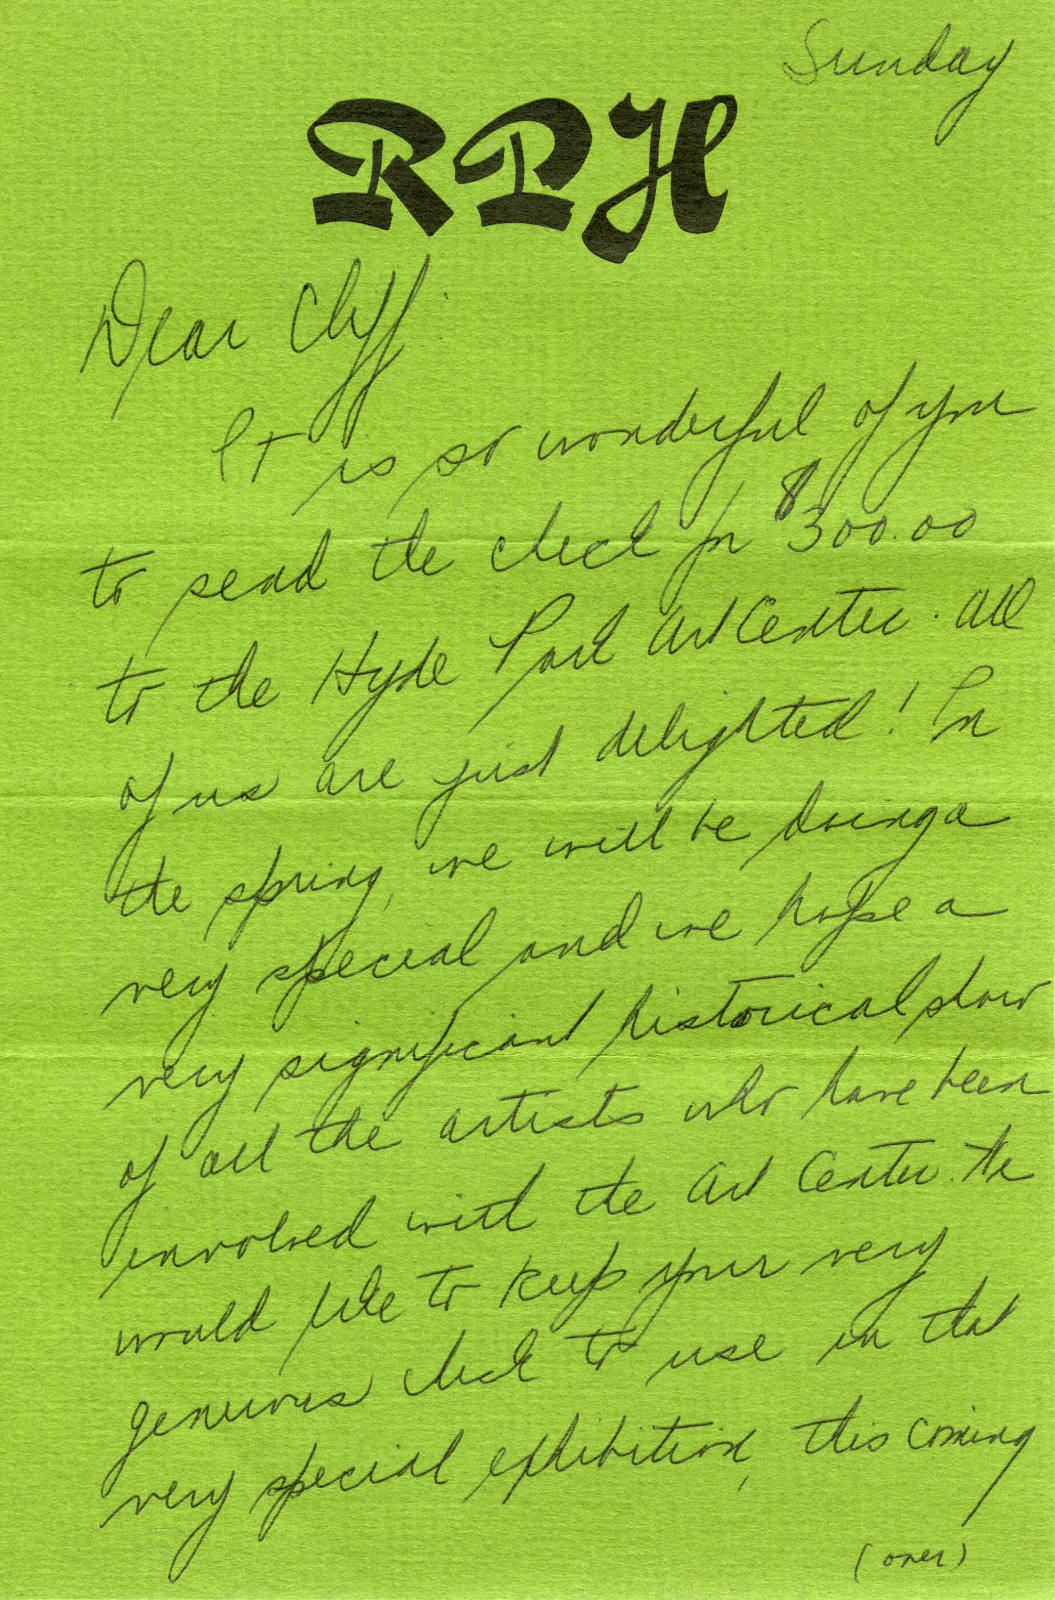 Sunday
RPH
Dear Cliff:
It is so wonderful of you
to send the check for $300.00
to the Hyde Park Art Center. All
of us are just delighted! In
the spring, we will be doing a
very special and we hope a
very significant historical show
of all the artists who have been
involved with the Art Center. We
would like to keep your very
generous check to use in that
very special exhibition, this coming
(over)